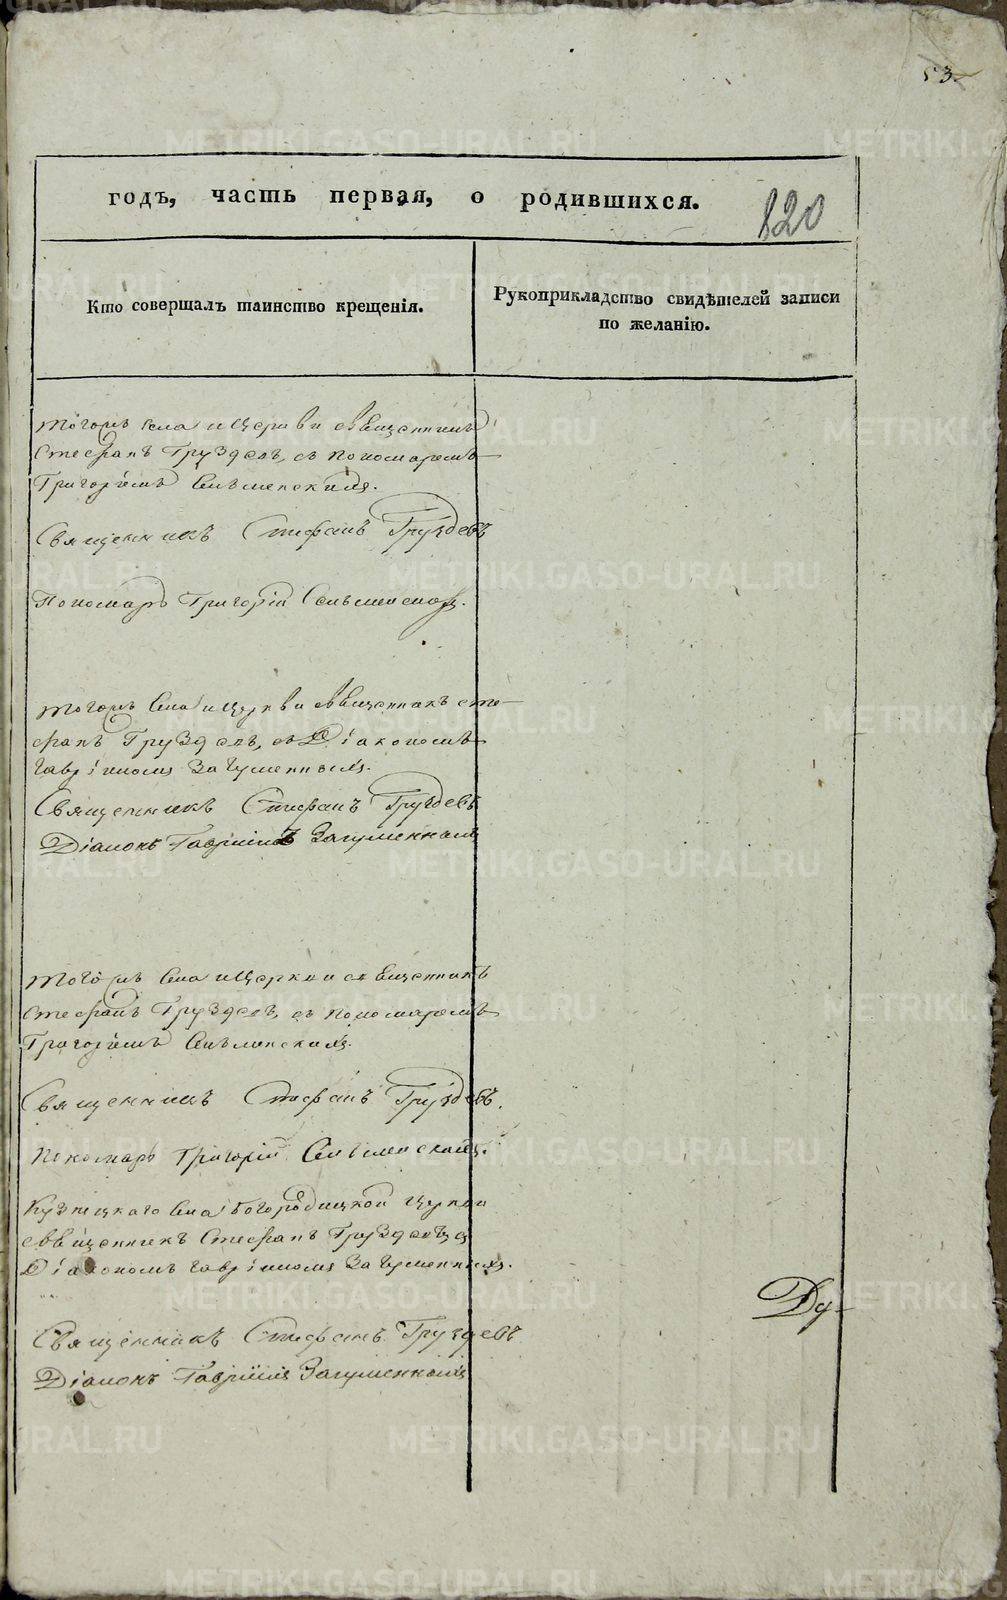 53.
годъ, часть первая, о родившихся.
120
Кто совершалъ таинство крещенія.
Рукоприкладство свидѣтелей записи
по желанію.
тогожъ села и Церкви священникъ
Стефанъ Груздевъ, съ пономаремъ
Григоріемъ
Священникъ Стефанъ Груздевъ
Пономарь Григорій
тогожъ села и Церкви священникъ Сте-
фанъ Груздевъ, съ Діакономъ
Гавріиломъ Загуменныхъ.
Священникъ Стефанъ Груздевъ
Діаконъ Гавріилъ Загуменныхъ
тогожъ села и Церкви священникъ
Стефанъ Груздевъ, съ пономаремъ
Григоріемъ
Священникъ Стефанъ Груздевъ.
Пономарь Григорій
села Богородицкой Церкви
священникъ Стефанъ Груздевъ съ
Діакономъ Гавріиломъ Загуменныхъ.
Священникъ Стефанъ Груздевъ
Діаконъ Гавріилъ Загуменныхъ
METRIKI.GASO-URAL.RU